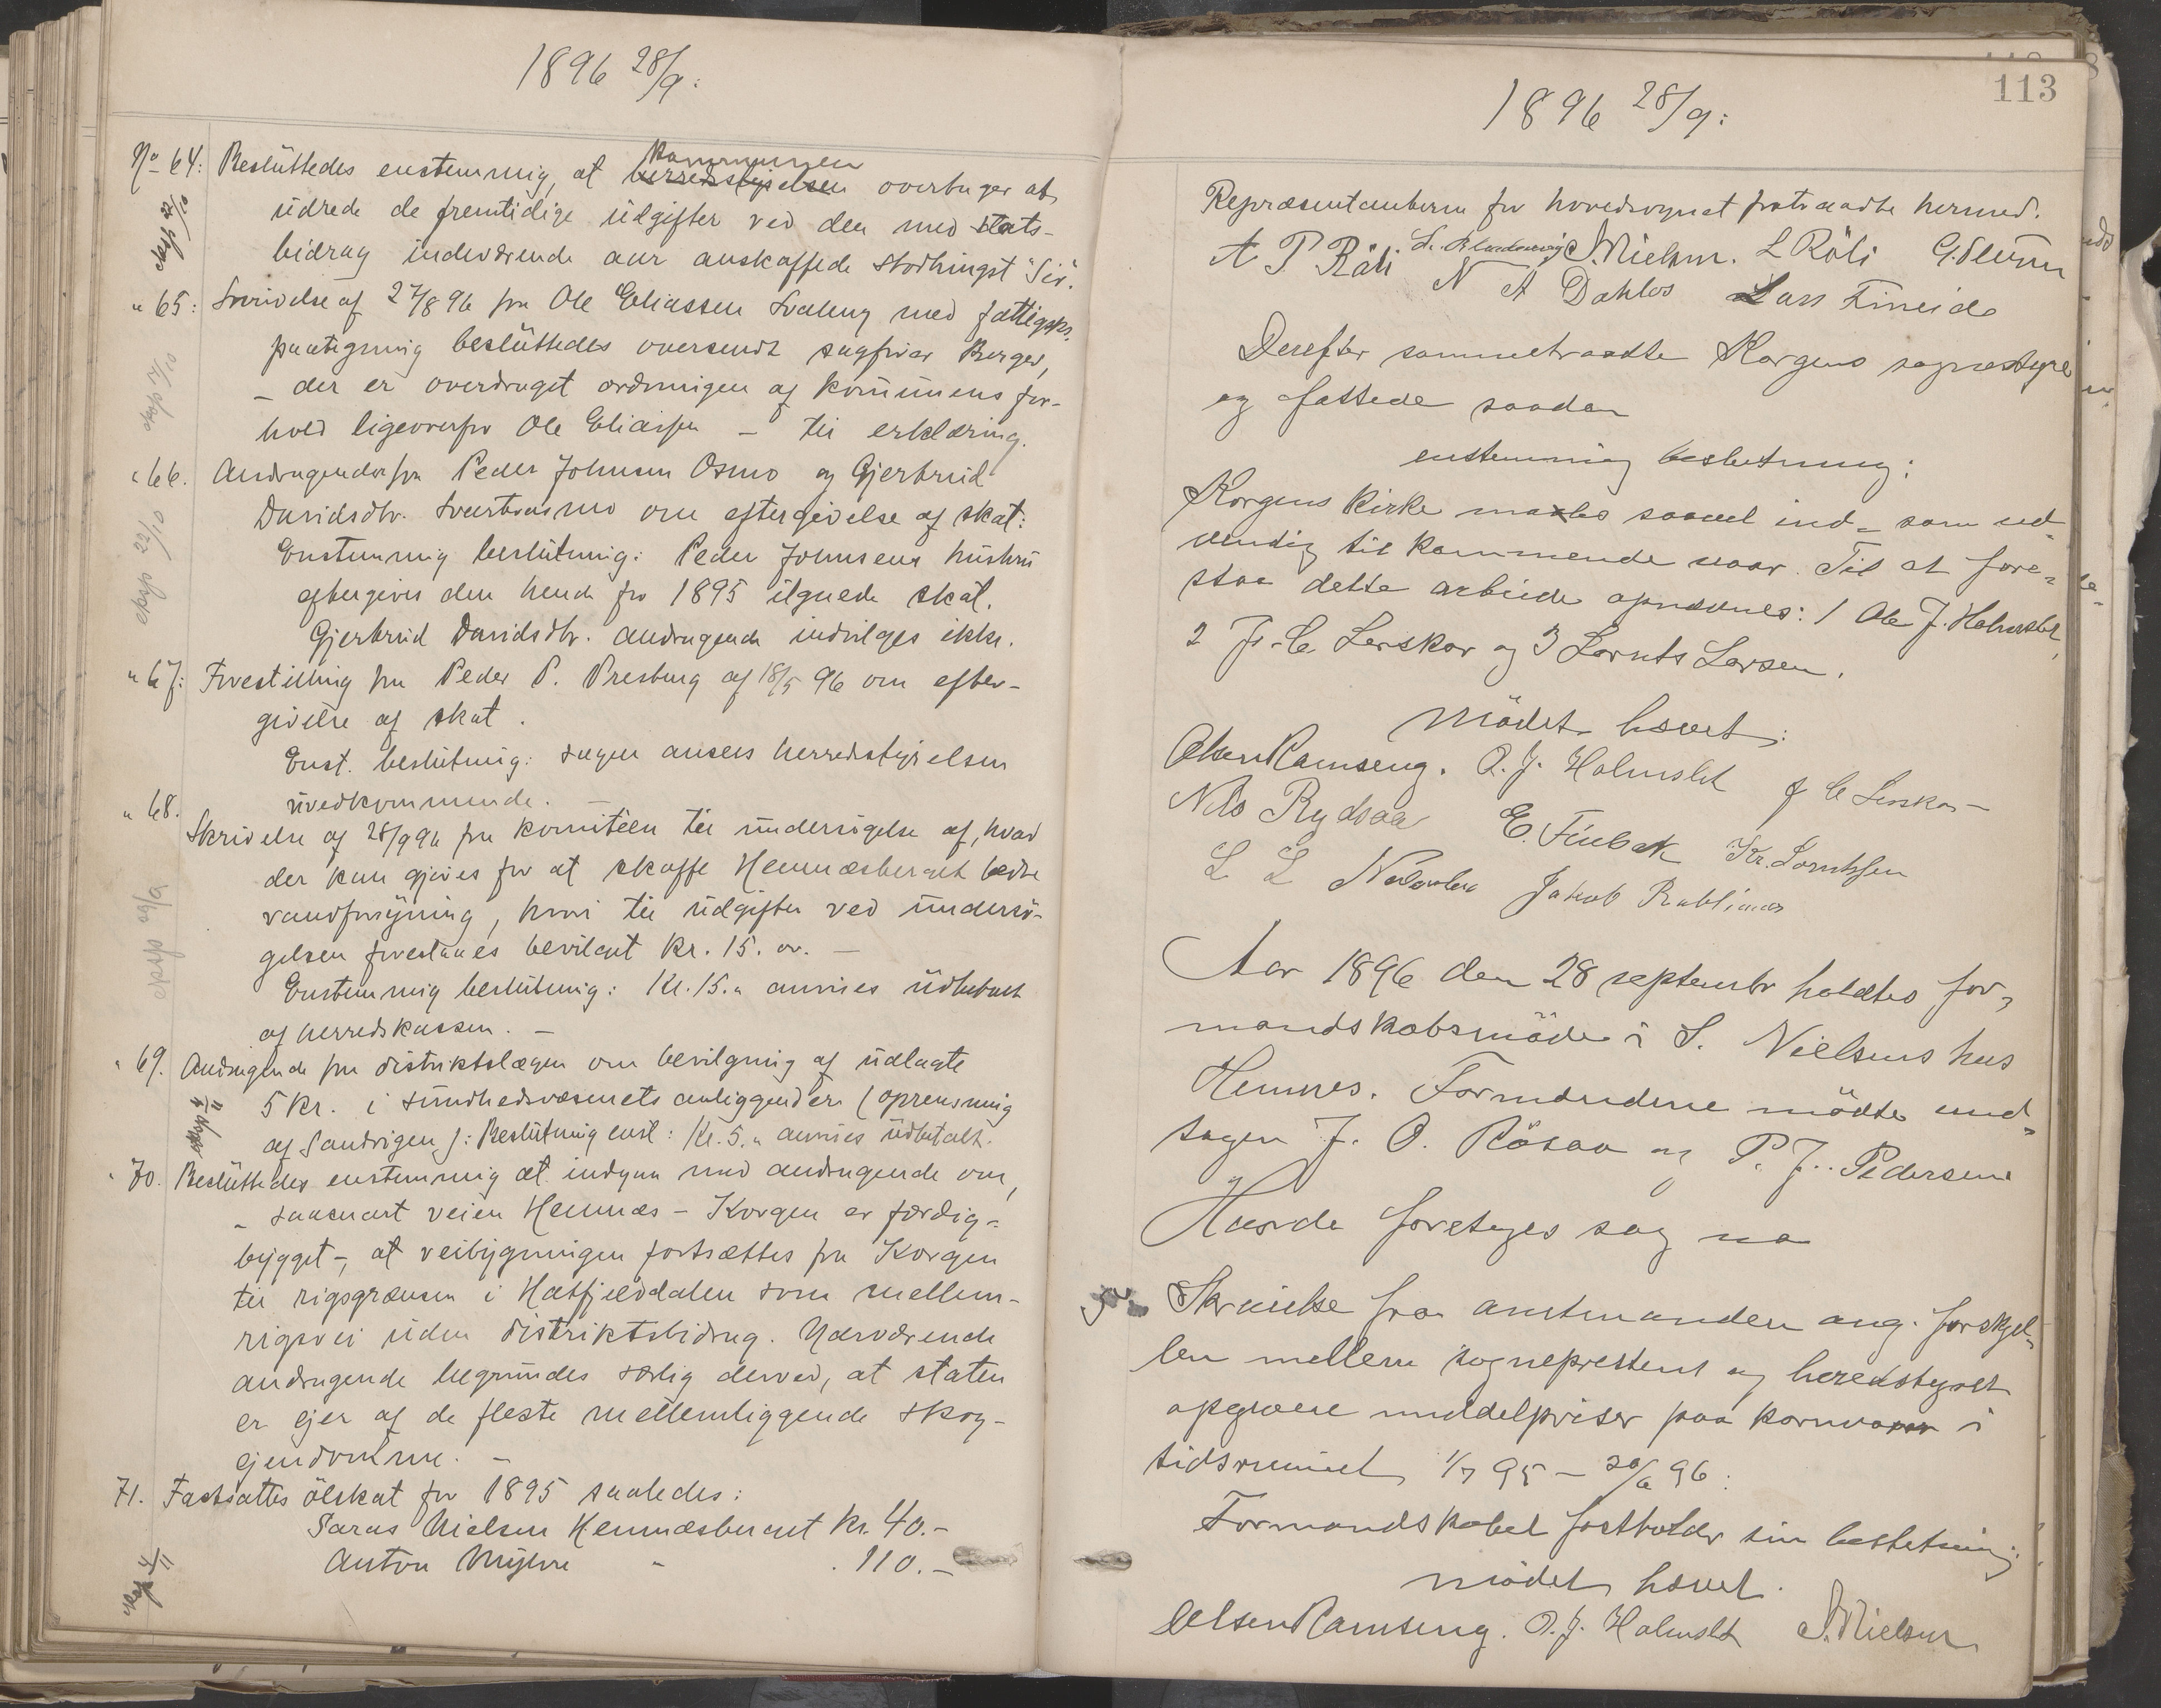 1896 28/9:
No 64: Besluttedes enstemmig, at kommunen herredstyrelsen overtager at
eksp 22/10
udrede de fremtidige udgifter ved den med stats-
bidrag indeværende aar anskaffede stodhingst "Siv".
" 65: Skrivelse af 27/8 96 fra Ole Eliassen Svaleng med fattigsks.
paategning besluttedes oversendt sagfører Berger,
eksp 7/10
- der er overdraget ordningen af kommunens for-
hold ligeoverfor Ole Eliassen - til erklæring.
" 66. Andragender fra Peder Johnsen Osmo og Gjertrud
Davidsdtr. Svartvasmo om eftergivelse af skat:
eksp 22/10
Enstemmig beslutning: Peder Johnsens hustru
eftergives den hende for 1895 ilignede skat.
Gjertrud Davidsdtr. andragende indvilges ikke.
" 67: Forestilling fra Peder P. Presteng af 18/5 96 om efter-
givelse af skat.
Enst. beslutning: sagen ansees herredstyrelsen
uvedkommende. -
" 68. Skrivelse af 28/9 96 fra komiteen til undersøgelse af, hvad
der kan gjøres for at skaffe Hemnæsberget bedre
eksp 29/9
vandforsyning, hvori til udgifter ved undersø-
gelsen foreslaaes bevilget kr. 15. oo. -
Enstemmig beslutning: Kr. 15." anvises udbetalt
af herredskassen. -
" 69. Andragende fra distriktslægen om bevilgning af udlagte
eksp 4/11
5 kr. i sundhedsvæsenets anliggender (oprensning
af Sandvigen): Beslutning enst: Kr. 5." anvises udbetalt.
" 70. Besluttedes enstemmig at indgaa med andragende om,
- saasnart veien Hemnæs - Korgen er færdig-
bygget -, at veibygningen fortsættes fra Korgen
til rigsgrænsen i Hatfjelddalen som mellem-
rigsvei uden distriktsbidrag. Nærværende
andragende begrundes særlig derved, at staten
er ejer af de fleste mellemliggende skog-
ejendomme. -
71. Fastsattes ølskat for 1895 saaledes:
Saras Nielsen Hemnæsberget kr. 40.-
Anton " 110.-
eksp 4/11
113
1896 28/9:
Repræsentanterne for hovedsognet fratraadte hermed.
A P Røli S. Nielsen. L Røli
N A Dahlos Lars Fineide
Derefter sammetraadte Korgens sognestyre
og fattede saadan
enstemmig beslutning:
Korgens kirke males saavel ind- som ud-
vendig til kommende vaar. Til at fore-
staa dette arbeide opnævnes: 1 Ole J. Holmslet,
2 J. C. Lerskar og 3 Lornts Larsen.
Mødet hævet:
Olsen Ramseng. O. J. Holmslet J C Lerskar
Nils Rydsaa E. Finbak Kr. Lorntsen
L L Jakob
Aar 1896 den 28 september holdtes for-
mandskabsmøde i S. Nielsens hus
Hemnes. Formændene mødte und-
tagen J. O. Røsaa og P. J. Pedersen.
Havde foretages sag no
Skrivelse fra amtmanden ang. forskjel-
len mellem sognepresten og heredstyret
opgivne middelpriser paa kornvarer i
tidsrummet 1/7 95 - 30/6 96:
Formandskabet fastholder sin beslutning.
mødet hævet.
Olsen Ramseng. O. J. Holmslet S. Nielsen